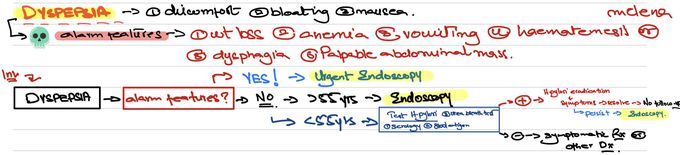 DYSPEPSIA → ① discomfort ② bloating ③ nausea. melena
alarm features → ① wt loss ② anemia ③ vomiting ④ haematemesis or
⑤ dysphagia ⑥ Palpable abdominal mass.
Inv YES! → Urgent Endoscopy
DYSPEPSIA → alarm features? → NO → >55yrs → Endoscopy
<55yrs → Test H-pylori ① urea breath test
① serology ③ stool antigen
+ → H-pylori eradication
symptoms → resolve → No follow up
→ persist → Endoscopy.
− → symptomatic Rx or
other Dx.